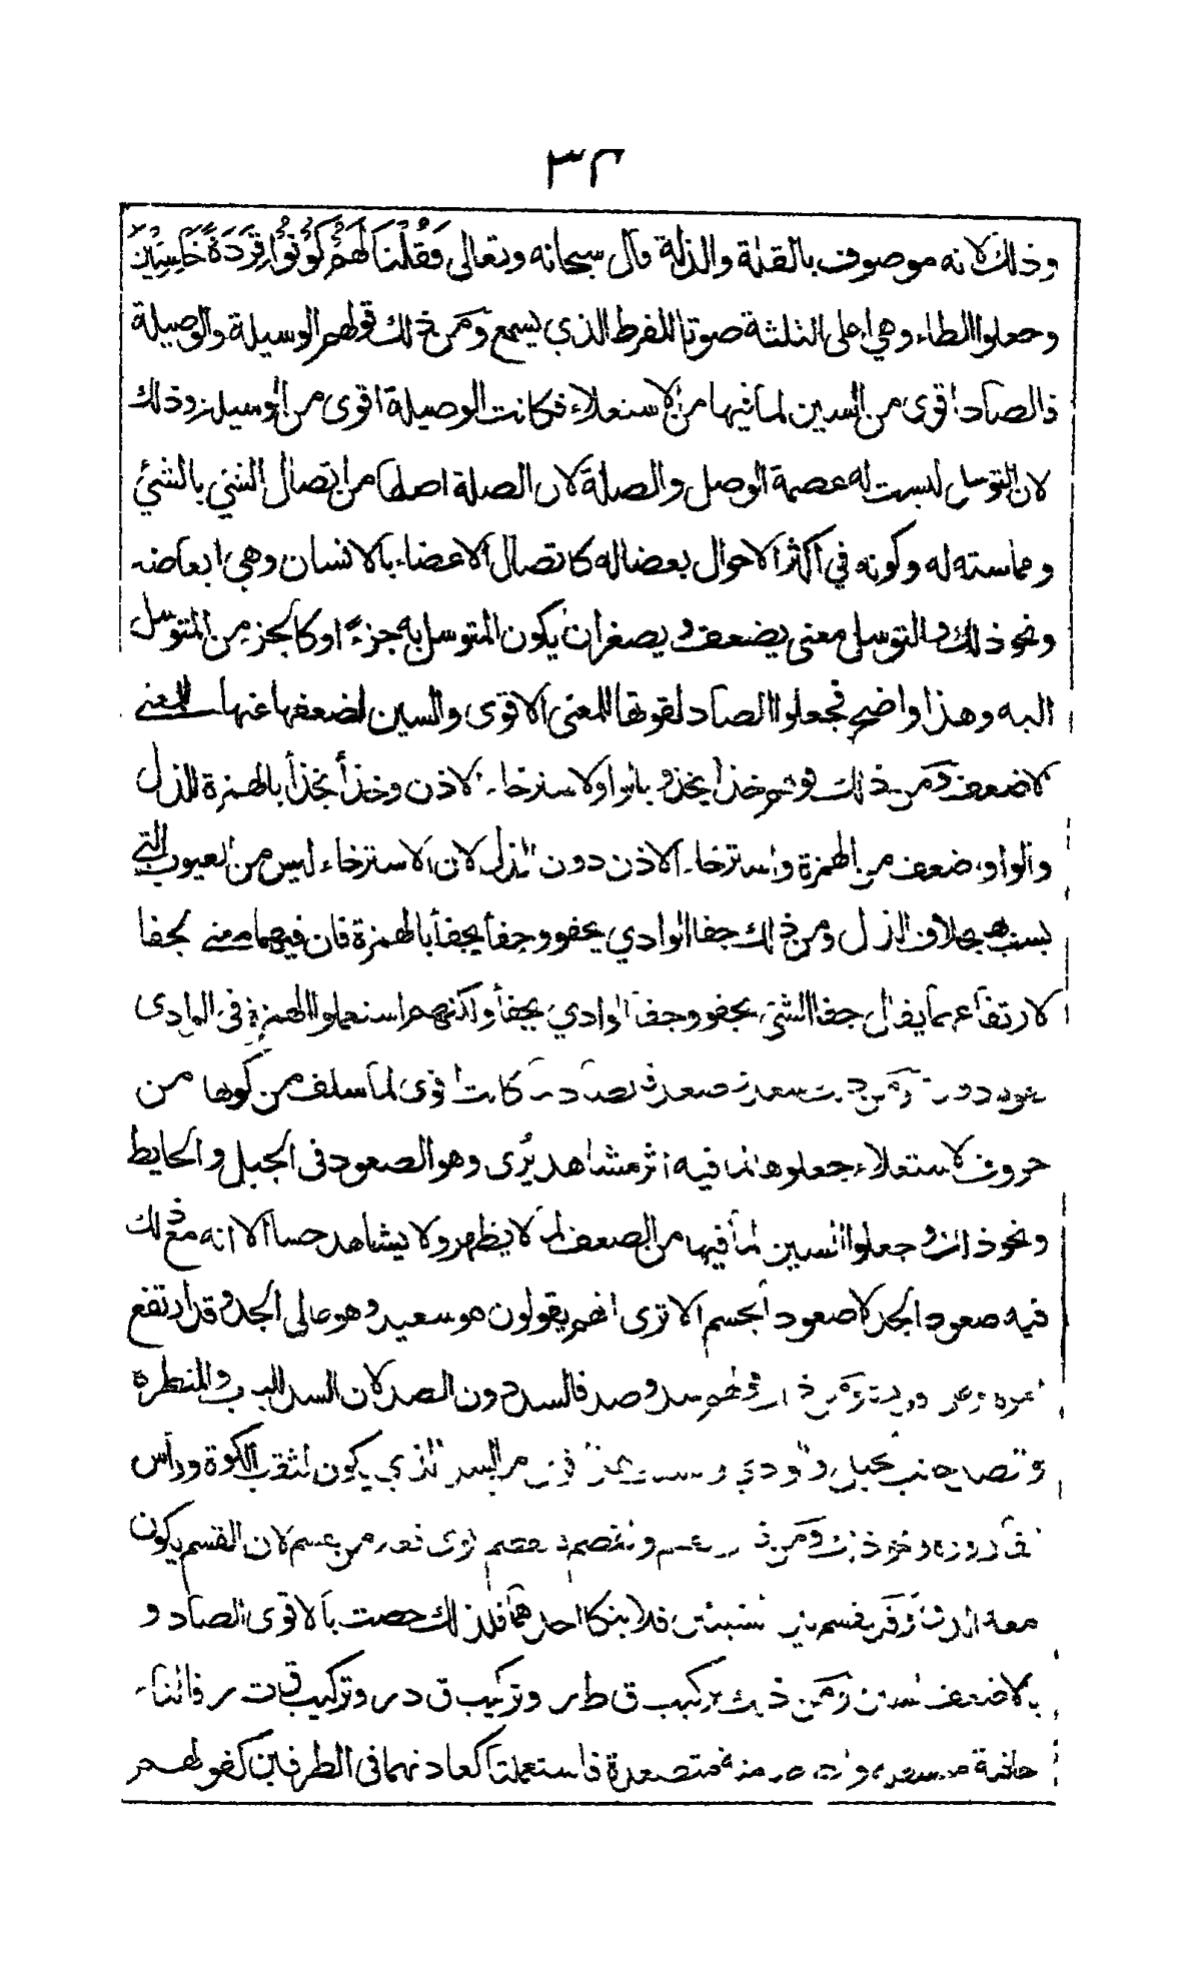 ٣٢
وذلك لانه موصوف بالقلة والذلة قال سبحانه وتعالى فَقُلْنَا لَهُمْ كُونُوا قِرَدَةً خَاسِئِينَ
وجعلوا الطاء وهي اعلى الثلثة صوتا للفرط الذي يسمع ومن ذلك قولهم الوسيلة والوصيلة
فالصاد اقوى من السين لما فيها من الاستعلاء فكانت الوصيلة اقوى من الوسيلة وذلك
لان التوسل ليست له عصمة الوصل والصلة لان الصلة اصلها من اتصال الشئ بالشئ
ومماسته له وكونه في اكثر الاحوال بعضا له كاتصال الاعضاء بالانسان وهي ابعاضه
ونحو ذلك والتوسل معنى يضعف ويصغر ان يكون المتوسل به جزءً او كالجزء من المتوسل
اليه وهذا واضح فجعلوا الصاد لقوتها للمعنى الاقوى والسين لضعفها عنها للمعنى
الاضعف ومن ذلك قولهم خذا يخذو بالواو لاسترخاء الاذن وخذأ يخذأ بالهمزة للذل
والواو اضعف من الهمزة واسترخاء الاذن دون الذل لان الاسترخاء ليس من العيوب التي
يسب بها بخلاف الذل ومن ذلك جفا الوادي يجفو وجفأ يجفأ بالهمزة فان فيهما معنى الجفا
لارتفاعهما يقال جفا الشئ يجفو وجفأ الوادي يجفأ ولكنهم استعملوا الهمزة في الوادى
ومن سعد وصعد فالصاد كانت اقوى لما سلف من كونها من
حروف الاستعلاء جعلوها لما فيه اثر مشاهد يُرى وهو الصعود فى الجبل والحايط
ونحو ذلك وجعلوا السين لما فيها من الضعف لما لا يظهر ولا يشاهد حسا الا انه مع ذلك
فيه صعود الجد لا صعود الجسم الا ترى انهم يقولون هو سعيد وهو عالى الجد وقد ارتفع
امره ومن ذلك قولهم سد وصد فالسد دون الصد لان السد للباب والمنظرة
والصد جانب الجبل والوادي من السد الذي يكون لثقب الكوة وراس
ونحو ذلك ومن القسم والقصم فالقصم اقوى فعلا من القسم لان القسم يكون
معه الدق وقد يقسم بين الشيئين فلا ينكا احدهما فلذلك خصت بالاقوى الصاد و
بالاضعف السين ومن ذلك تركيب ق ط ر وتركيب ق د ر وتركيب ق ت ر فالتاء
خافية متسفلة والطاء متصعدة فاستعملتا لتعاديهما فى الطرفين كقولهم